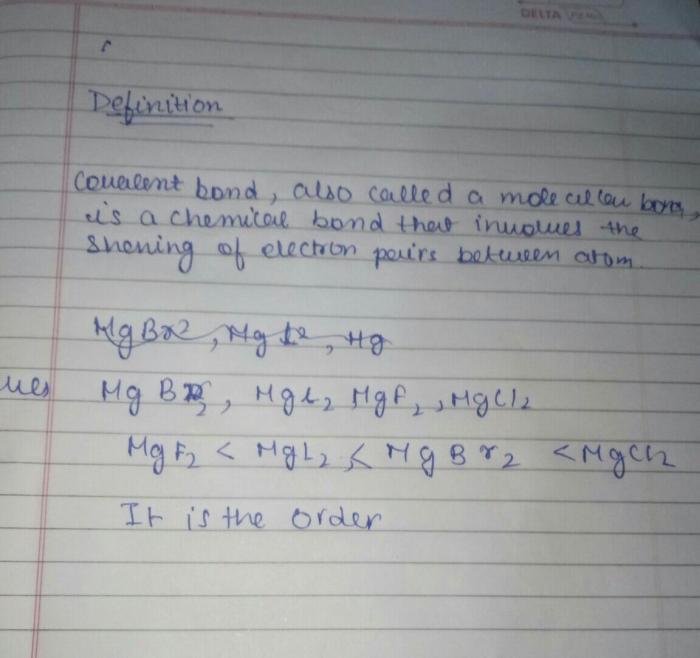 DELTA
Definition
Covalent bond, also called a molecular bond,
is a chemical bond that involves the
shening of electron pairs between atom.
MgBr2, MgI2, Hg
ues Mg Br2, MgI2 MgF2, MgCl2
MgF2 < MgI2 < MgBr2 < MgCl2
It is the order